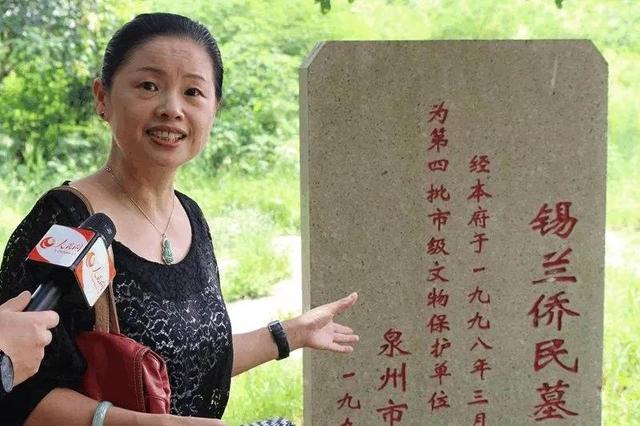 锡兰侨民墓
经本府于一九九八年三月
为第四批市级文物保护单位
泉州市
一九
人民网
人民网